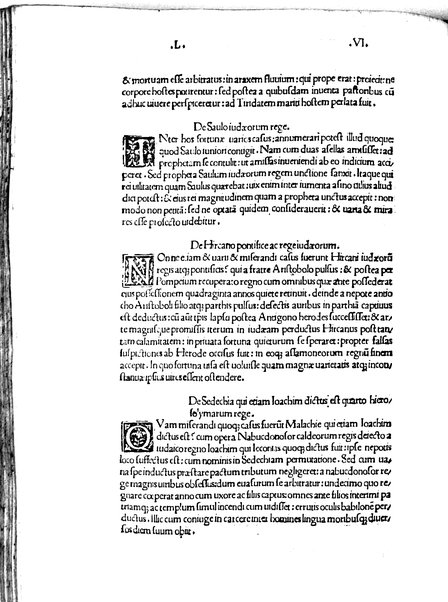 .L. .VI.
& mortuam esse arbitratus: in araxem fluuium: qui prope erat: proiecit: ne
corpore hostes potirentur: sed postea a quibusdam inuenta pastoribus cũ
adhuc uiuere perspiceretur: ad Tiridatem mariti hostem perlata fuit.
De Saulo iudæorum rege.
INter hos fortunæ uarios casus: annumerari potest illud quoque:
quod Saulo iuniori contigit. Nam cum duas asellas amisisset: ad
prophetam se contulit: ut amissas inueniendi ab eo indicium acci
peret. Sed prophera Saulum iudæorum regem unctione sanxit. Itaque qui
rei uilitatem quam Saulus quærebat: uix enim inter iumenta asino uilius aliud
dici potest: & eius rei magnitudinem quam a propheta unctus accepit: non
modo non penitā: sed ne optatā quidem considerauerit: & uaria & mira
res esse profecto uidebitur.
De Hircano pontifice ac rege iudæorum.
NOn etiam & uarii & miserandi casus fuerunt Hircani iudæorũ
regis atq; pontificis? qui a fratre Aristobolo pulsus: & postea per
Pompeium recuperato regno cum omnibus quæ ante possederat
eius possessionem quadraginta annos quiete retinuit. deinde a nepote antio
cho Aristoboli filio atq; parthis pulsus: defectis auribus in parthiā captiuus
est deductus: cũ aũt ipsis lapso postea Antigono herodes successisset: & ar/
te magnisque promissis iterum in iudæam perductus Hircanus post tan/
tam calamitatem: in priuata fortuna quieturum se speraret: propter falsas
suspitiones ab Herode occisus fuit: in eoq; assamoneorum regnũ finem
accepit. In quo fortuna ista est uoluisse quam magnæ uarietatis atq; incon/
stantiæ ipsius uires essent ostendere.
De Sedechia qui etiam Ioachim dictus est quarto hiero/
solymarum rege.
QVam miserandi quoq; casus fuerũt Malachie qui etiam Ioachim
dictus est? cum opera Nabucdonosor caldeorum regis deiecto a
iudaico regno Ioachim qui Ieconias quoq; dictus fuit: ipse nepotis
loco suffectus est: cum nominis in Sedechiam permutatione. Sed cum ua/
na spe inductus præstare pactum tributum negligeret: a nabucdonosor re
ge magnis uiribus obsessus: dum euasurum se arbitratur: undecimo quo re/
gnare cœperat anno cum uxore ac filiis captus: omnes ante filios interimi pa
triamq; ac templum simul incendi cum uidisset: erutis oculis babilonē per/
ductus. Illic cum coniuge in carcere inter homines lingua moribusq; diuer/
sos diem suum obiit.